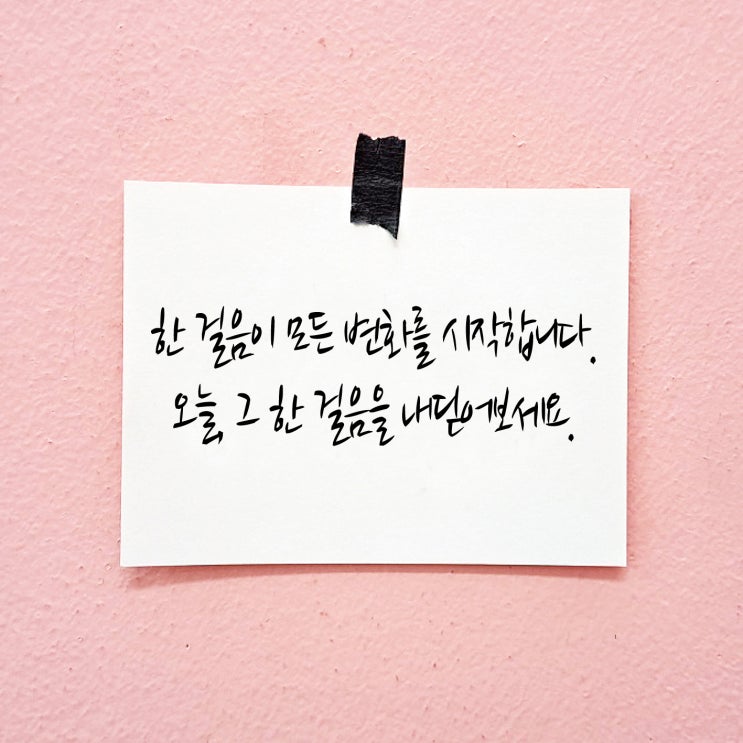 한 걸음이 모든 변화를 시작합니다.
오늘, 그 한 걸음을 내딛어보세요.